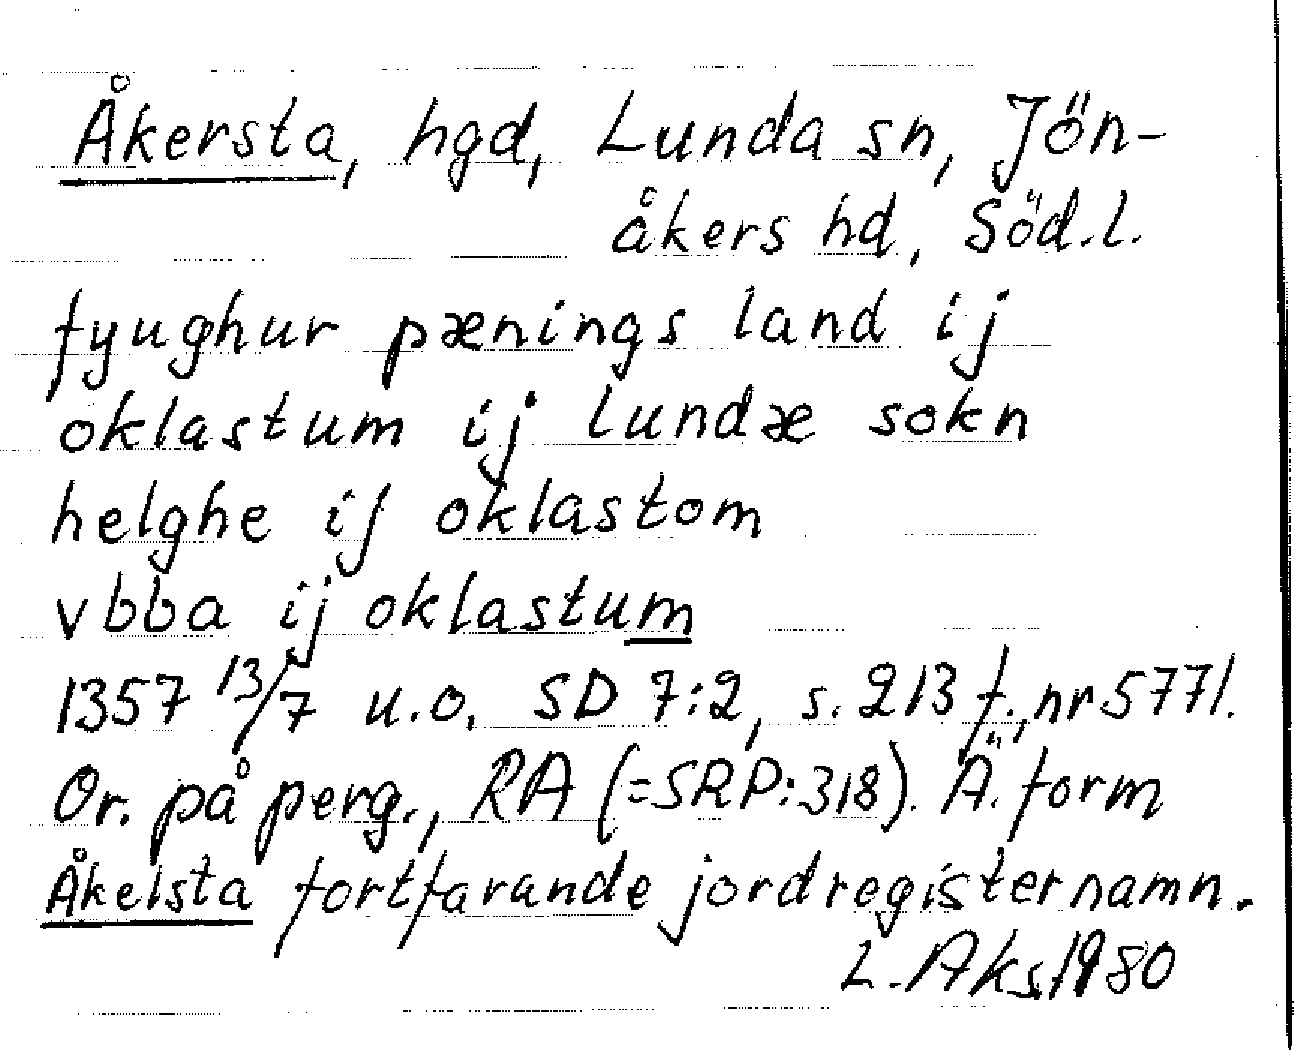 Åkersta, hgd, Lunda sn, Jön-
åkers hd, Söd.l.
fyughur pænings land ij
oklastum ij lundæ sokn
helghe ij oklastom
vbba ij oklastum
1357 13/7 u.o. SD 7:2, s. 213 f., nr 5771.
Or. på perg., RA (=SRP:318). Ä. form
Åkelsta fortfarande jordregisternamn.
L. Aks. 1980